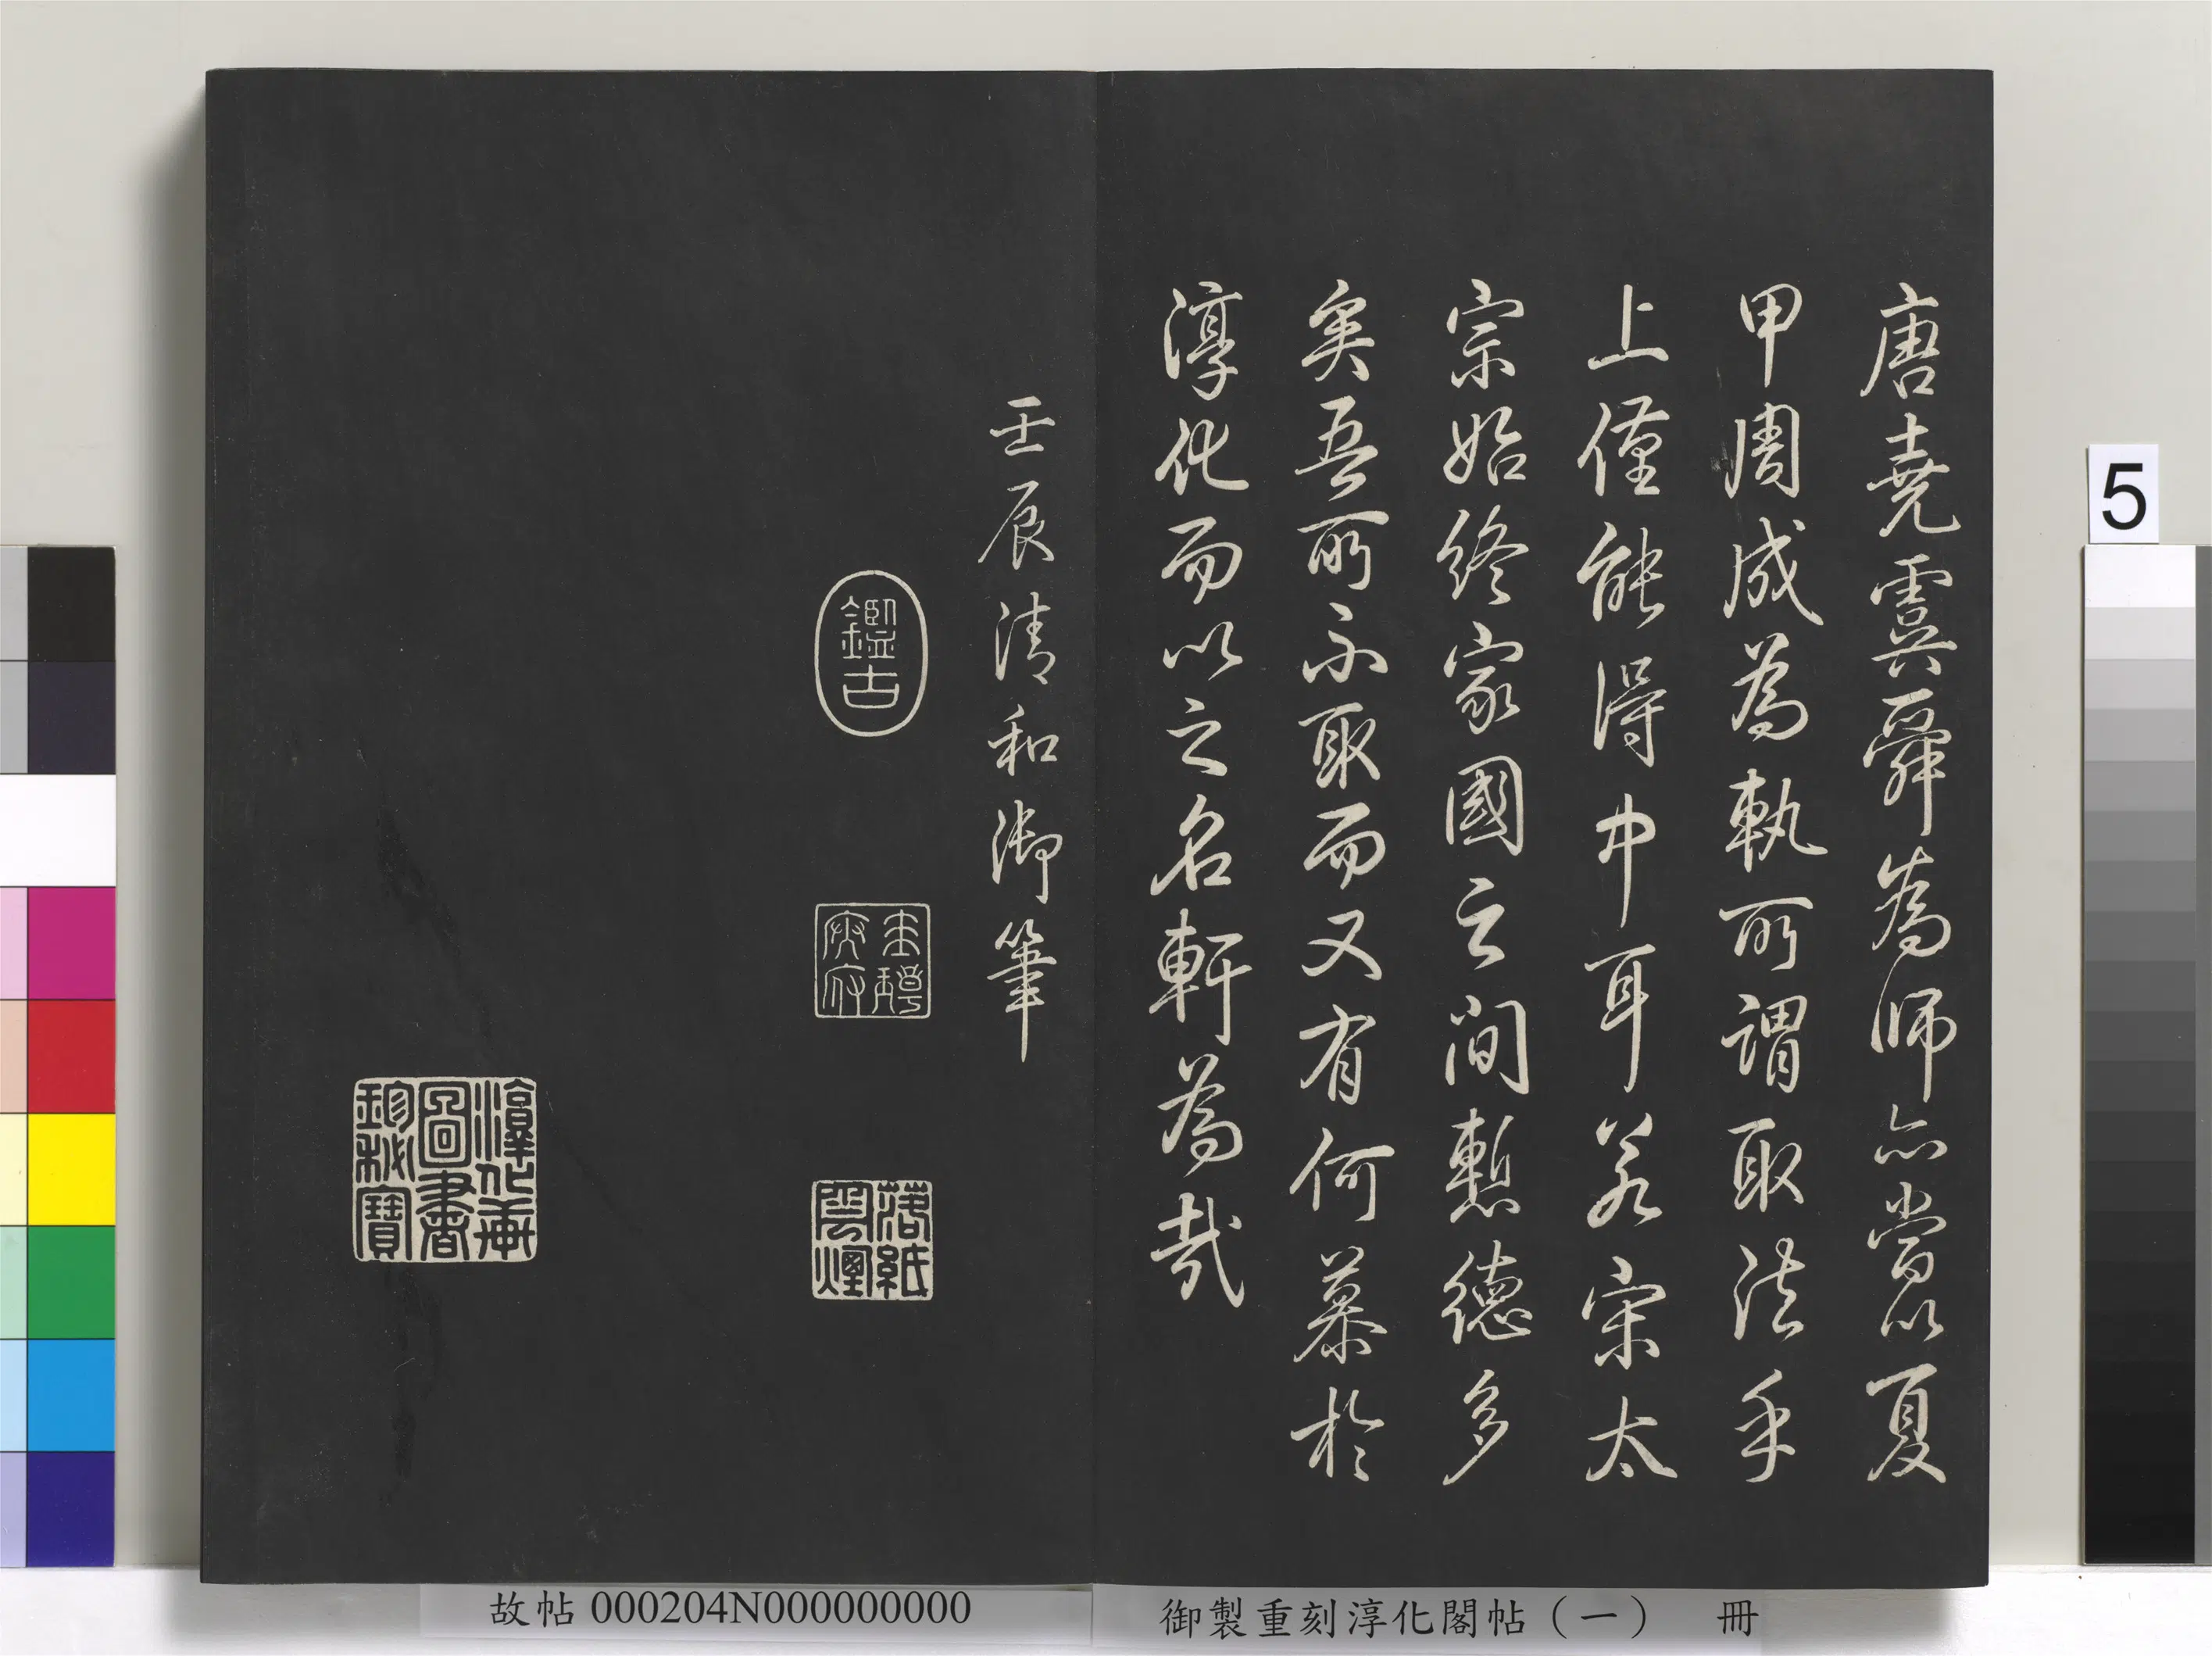 唐堯虞舜為師亦當以夏
甲周成為軌所謂取法乎
上僅能得中耳若宋太
宗始終家國之間慙德多
矣吾所不取而又有何慕於
淳化而以之名軒為哉
壬辰清和御筆
鑑古
落紙雲煙
淳化軒圖書珍秘寶
5
故帖 000204N000000000
御製重刻淳化閣帖（一） 冊